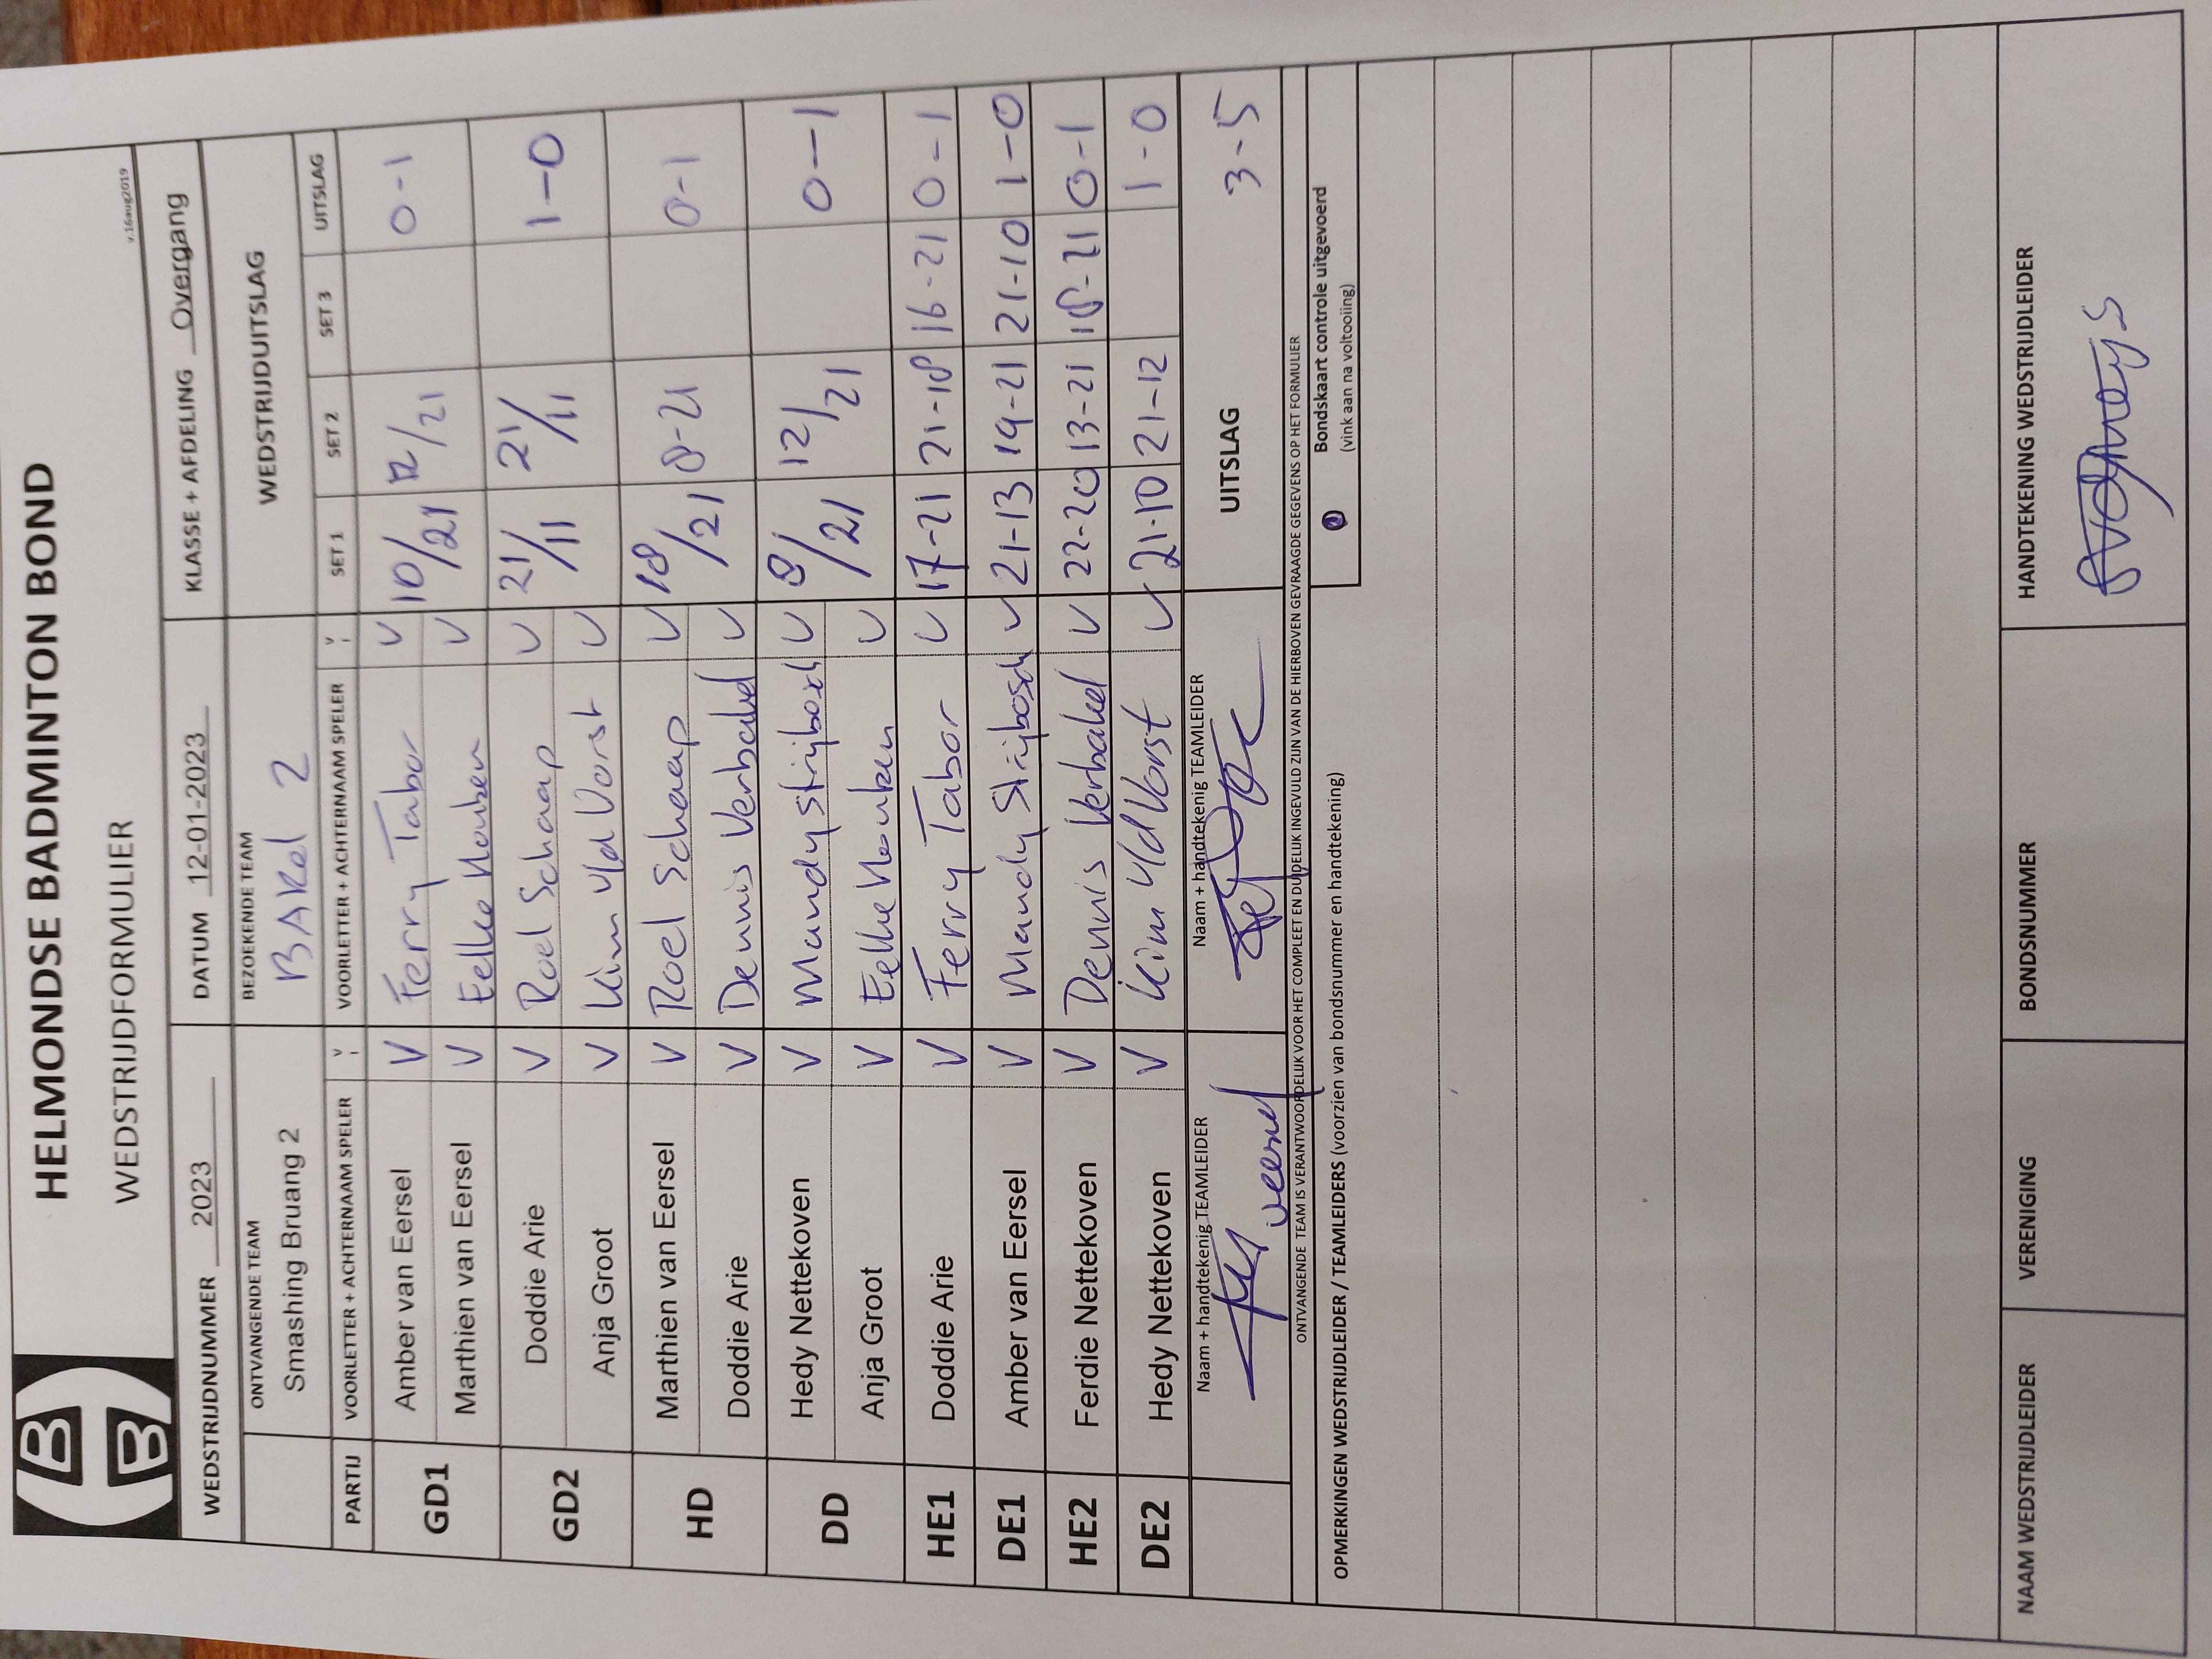 HELMONDSE BADMINTON BOND
WEDSTRIJDFORMULIER
v.16aug2019
WEDSTRIJDNUMMER 2023 DATUM 12-01-2023 KLASSE + AFDELING Overgang
ONTVANGENDE TEAM BEZOEKENDE TEAM WEDSTRIJDUITSLAG
Smashing Bruang 2 BAKel 2
PARTIJ VOORLETTER + ACHTERNAAM SPELER V VOORLETTER + ACHTERNAAM SPELER V SET 1 SET 2 SET 3 UITSLAG
GD1 Amber van Eersel V Ferry Tabor V 10/21 12/21 0-1
Marthien van Eersel V Eelke V
GD2 Doddie Arie V Roel Schaap V 21/11 21/11 1-0
Anja Groot V Kim v/d Vorst V
HD Marthien van Eersel V Roel Schaap V 18/21 8-21 0-1
Doddie Arie V Dennis Verbakel V
DD Hedy Nettekoven V Mandy Strijbosch V 9/21 12/21 0-1
Anja Groot V Eelke V
HE1 Doddie Arie V Ferry Tabor V 17-21 21-18 16-21 0-1
DE1 Amber van Eersel V Mandy Strijbosch V 21-13 19-21 21-10 1-0
HE2 Ferdie Nettekoven V Dennis Verbakel V 22-20 13-21 18-21 0-1
DE2 Hedy Nettekoven V Kim v/d Vorst V 21-10 21-12 1-0
Naam + handtekenig TEAMLEIDER Naam + handtekenig TEAMLEIDER UITSLAG 3-5
ONTVANGENDE TEAM IS VERANTWOORDELIJK VOOR HET COMPLEET EN DUIDELIJK INGEVULD ZIJN VAN DE HIERBOVEN GEVRAAGDE GEGEVENS OP HET FORMULIER
OPMERKINGEN WEDSTRIJDLEIDER / TEAMLEIDERS (voorzien van bondsnummer en handtekening)
Bondskaart controle uitgevoerd
(vink aan na voltooiing)
NAAM WEDSTRIJDLEIDER VERENIGING BONDSNUMMER HANDTEKENING WEDSTRIJDLEIDER